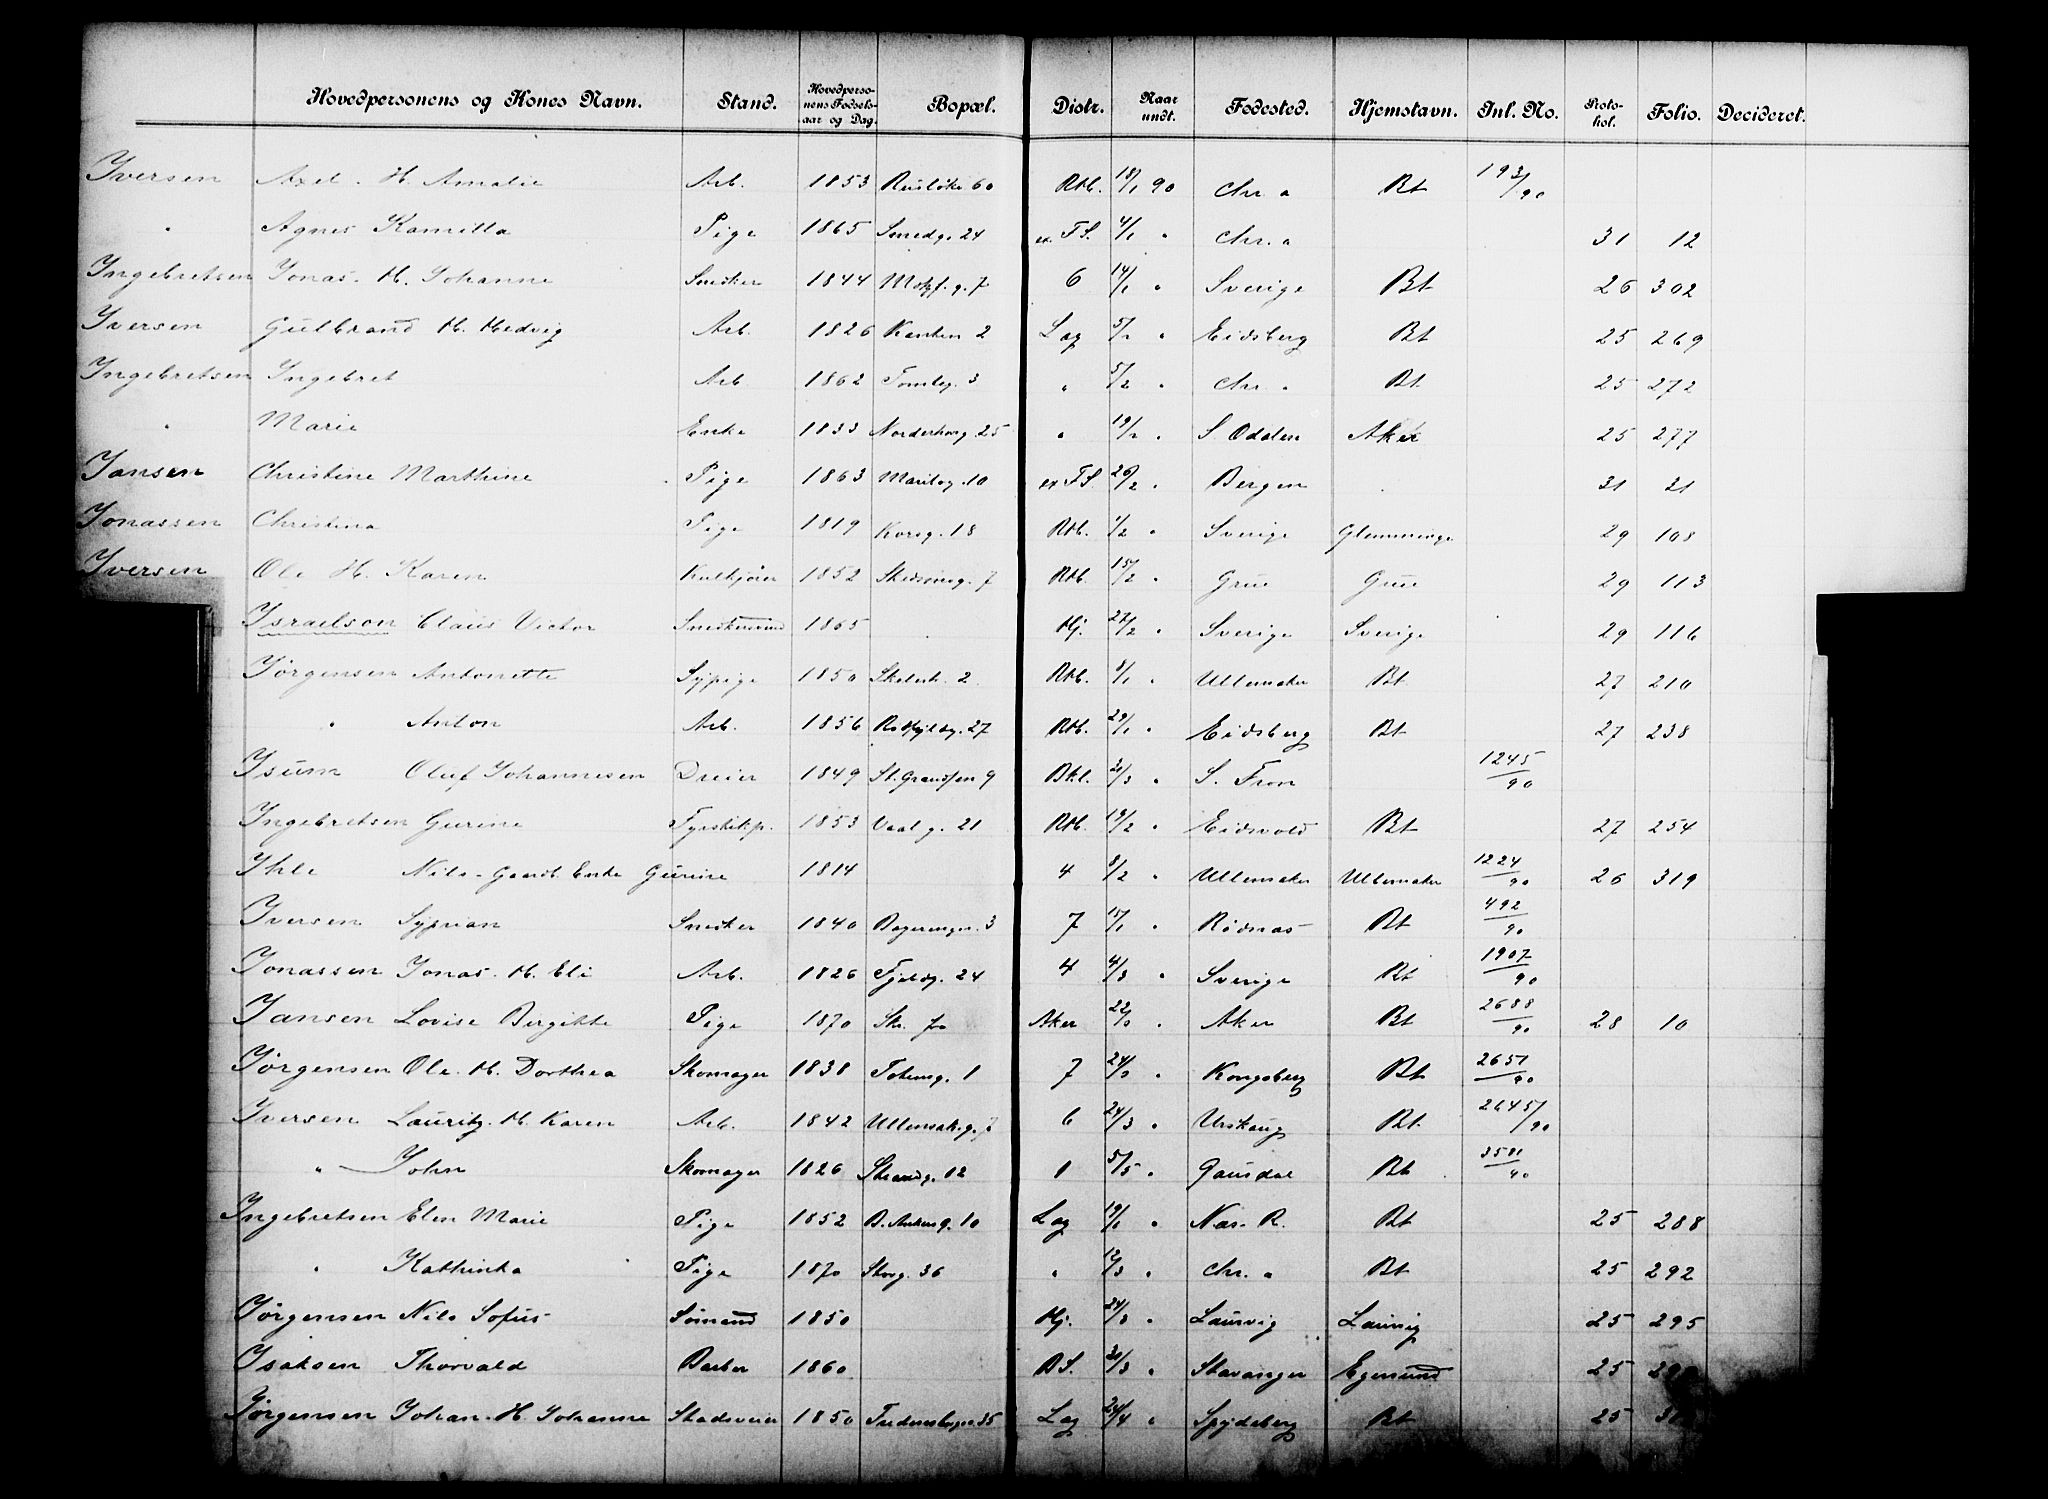 Hovedpersonens og Kones Navn. Stand. Hovedpersonens Fødselsaar og Dag. Bopæl. Distr. Naar undt. Fødested. Hjemstavn. Inl. No. Protokol. Folio. Decideret.
Iversen Axel. H. Amalie Arb. 1853 Rusløkv 60 Rtb. 18/1 90 Chr. a Bt 193/90
" Agnes Kamilla Pige 1865 Smedg. 24 ex. F.S. 4/1 " Chr. a 31 12
Ingebretsen Jonas. H. Johanne Snekker 1844 Motzf. g. 7 6 14/1 " Sverige Bt 26 302
Iversen Gulbrand H. Hedvig Arb. 1826 2 Lag 5/2 " Eidsberg Bt 25 269
Ingebretsen Ingebret Arb 1862 Tomteg. 3 " 5/2 " Chr. a Bt. 25 272
" Marie Enke 1833 Norderhovg. 25 " 19/2 " S Odalen Aker 25 277
Jansen Christine Marthine Pige 1863 Maribog. 10 ex F.S. 26/2 " Bergen 31 21
Jonassen Christina Pige 1819 Korsg. 18 Rtb. 1/2 " Sverige Glemminge 29 108
Iversen Ole H. Karen Kulkjører 1852 Skedsmog. 7 Rtb. 15/2 " Grue Grue 29 113
Israelson Claus Victor Snekkersvend 1865 Hj. 27/2 " Sverige Sverige 29 116
Jørgensen Antonette Sypige 1850 2 Rtb. 8/1 " Ullensaker Bt 27 210
" Anton Arb. 1856 27 Rtb. 29/1 " Eidsberg Bt 27 238
Isum Oluf Johannesen Dreier 1849 St. Grandsen 9 Bkl. " S. Fron 1245/90
Ingebretsen Gurine Fyrstikp. 1853 Vaal g. 21 Rtb. 19/2 " Eidsvold Bt 27 254
Ihle Nils. Gaardb. Enke Gurine 1814 4 8/2 " Ullensaker Ullensaker 1224/90 26 319
Iversen Syprian Snekker 1840 3 7 15/1 " Rødnæs Bt 492/90
Jonassen Jonas. H. Eli Arb. 1826 Fjeldg. 24 4 4/3 " Sverige Bt 1907/90
Jansen Lovise Birgitte Pige 1870 Aker 22/3 " Aker Bt 2688/90 28 10
Jørgensen Ole. H. Dorthea Skomager 1838 Totensg. 1 7 24/3 " Kongsberg Bt 2651/90
Iversen Lauritz. H. Karen Arb. 1842 Ullensak. g. 7 6 24/3 " Urskaug Bt. 2645/90
" John Skomager 1826 Strandg. 12 1 5/5 " Gausdal Bt 3581/90
Ingebretsen Elen Marie Pige 1852 10 Lag 19/1 " Næs. R. Bt 25 288
" Kathinka Pige 1870 Skovg. 36 " 12/3 " Chr. a Bt 25 292
Jørgensen Nils Sofus Sømand 1850 Hj. 24/3 " Laurvig Laurvig 25 295
Isaksen Thorvald Barber 1860 B.S. " Stavanger Egersund 25
Jørgensen Johan. H. Johanne Stadsveier 1850 35 Lag 24/4 " Spydeberg Bt 25